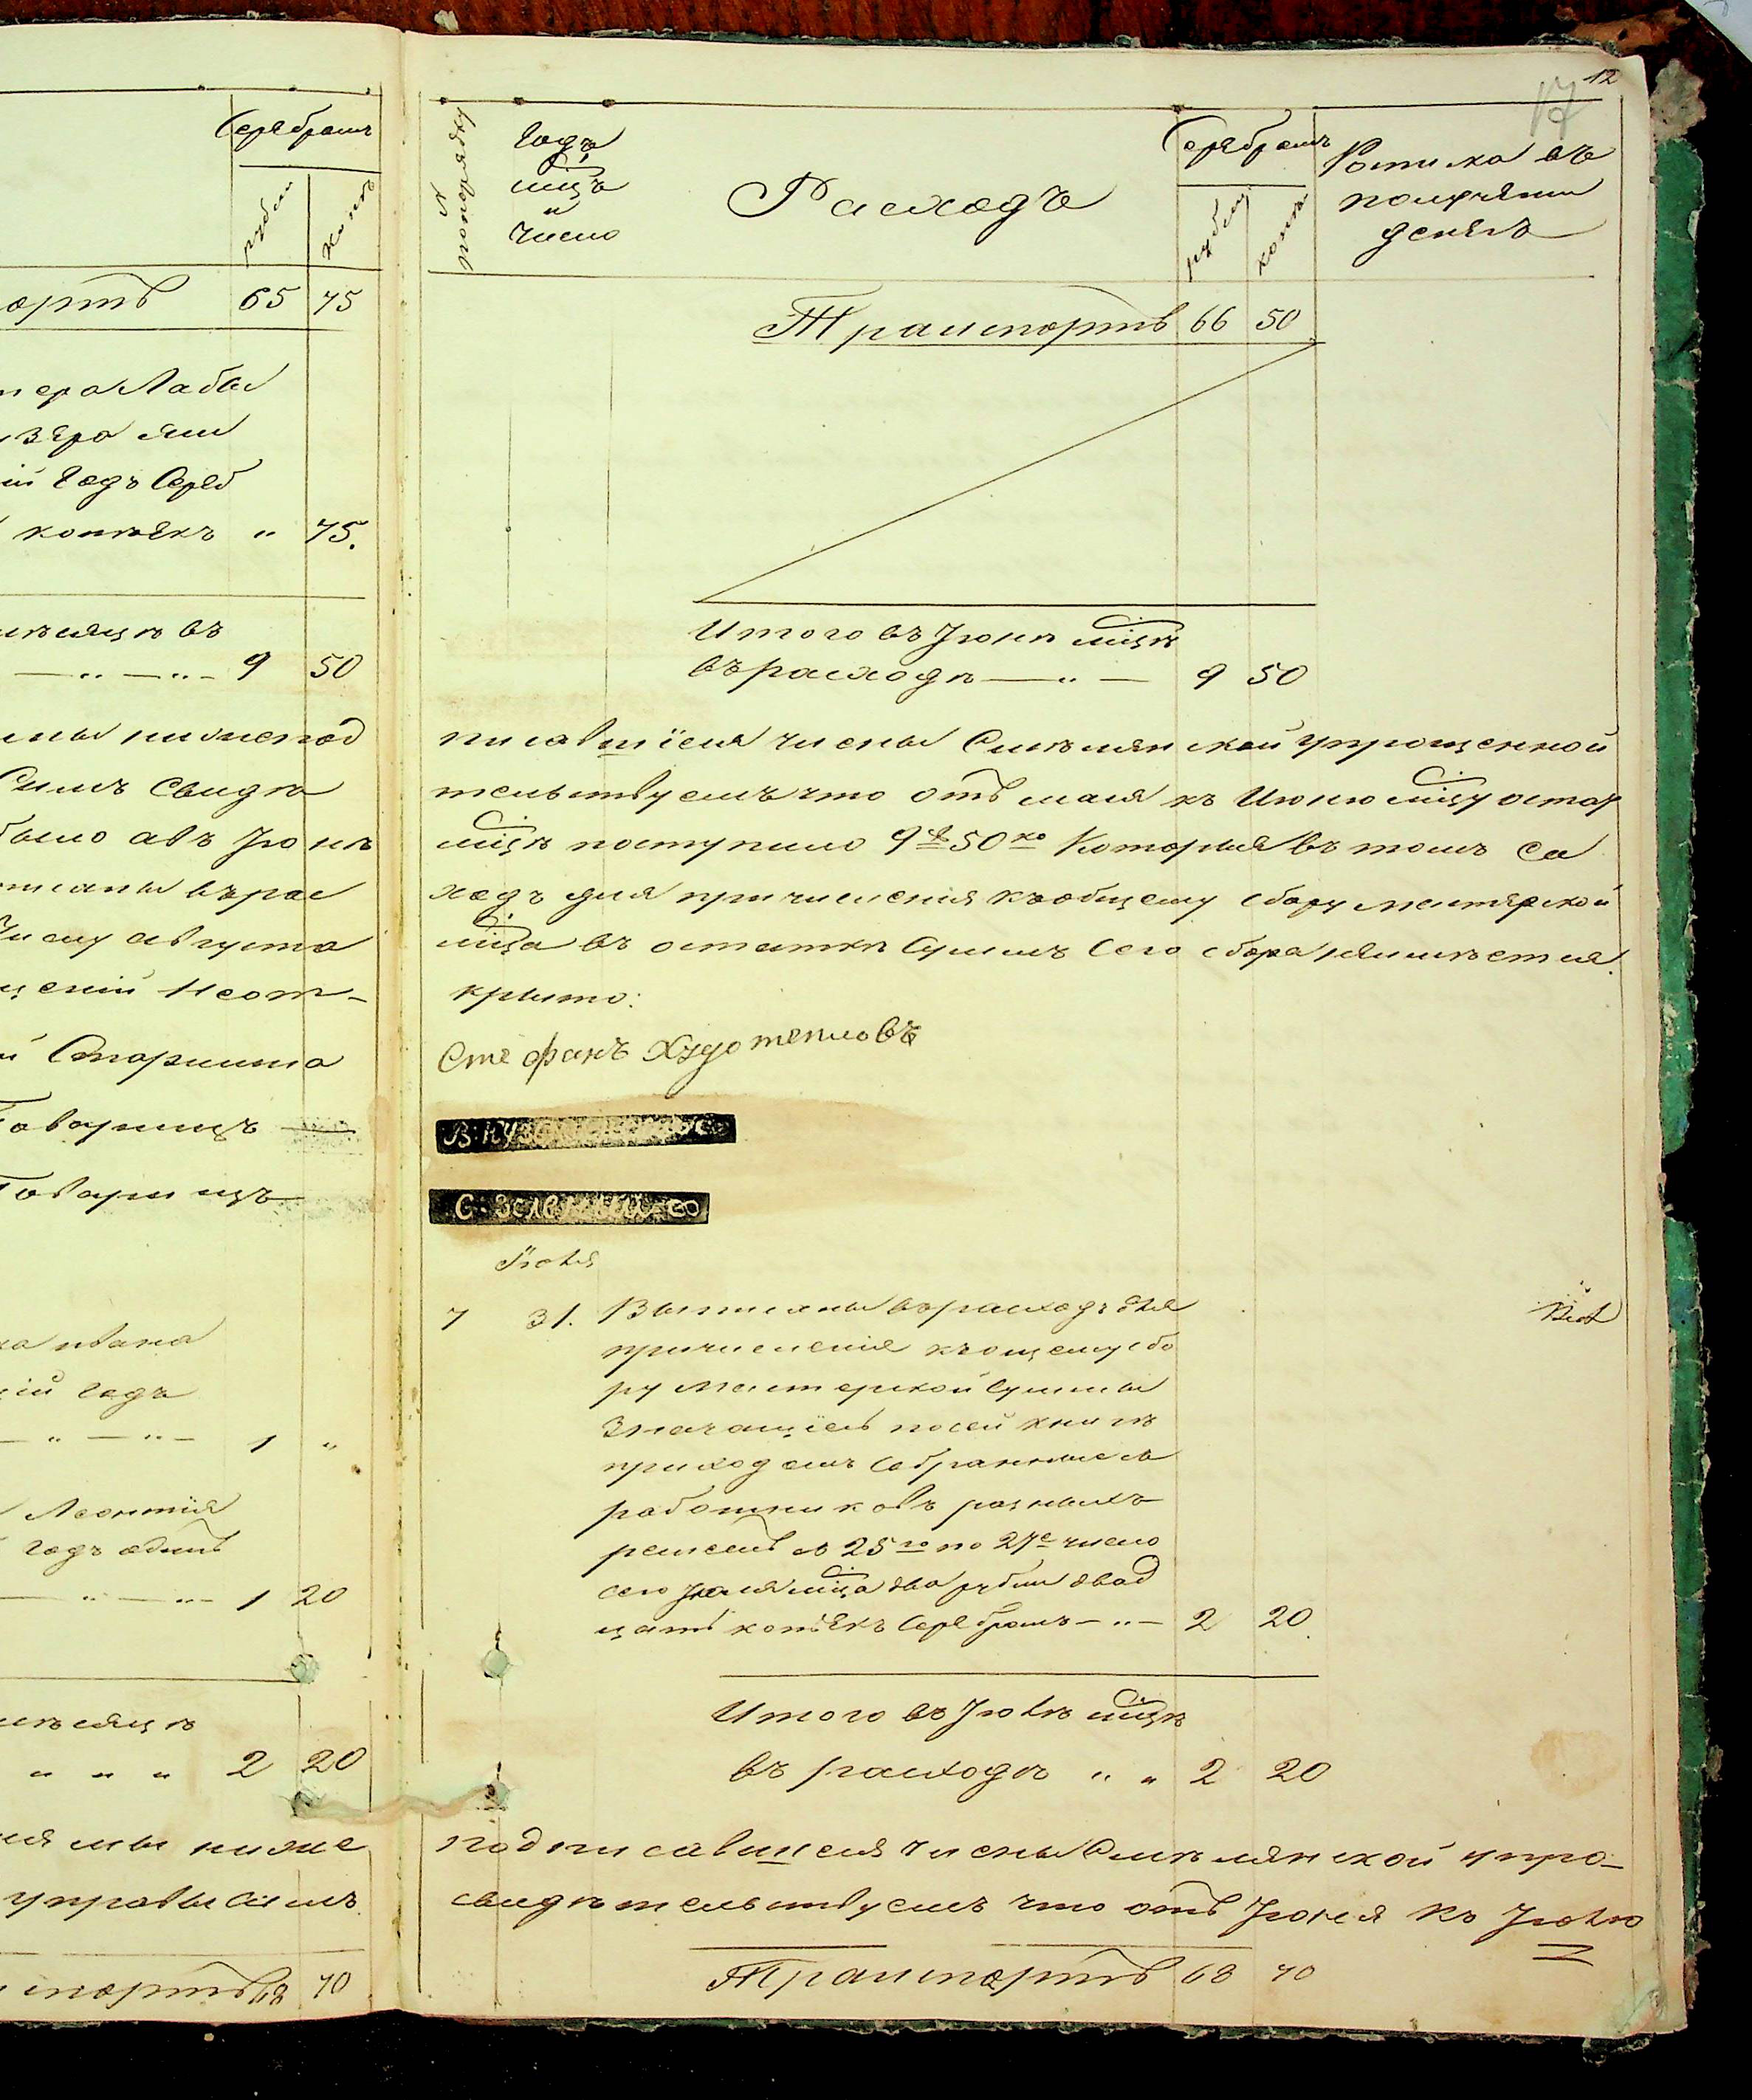 Серебромъ
рубли
копѣ
ортъ 65 75
нера Лабы
ій Годъ Сереб
копѣекъ " 75.
мѣсяцѣ въ
— " — " — 9 50
ены нижепод
Симъ Свидѣ
было а въ Іюнѣ
писаны въ рас
Числу августа
щеній Неот-
й Старшина
Товарищъ
Товарищъ
ка ивана
ій Годъ
— " — " — 1 "
Леонтія
годъ одинъ
— " — " — 1 20
мѣсяцѣ
" " " 2 20
ія мы ниже
управы Симъ
нспортъ 68 70
12
17
№ по порядку
Годъ
мцъ
и
Число
Расходъ
Серебромъ
рубли
копѣ
Росписка въ
полученіи
денегъ
Транспортъ 66 50
Итого въ Іюнѣ мцѣ
въ расходѣ — " — 9 50
писавшіеся члены Смѣлянской упрощенной
тельствуемъ что отъ мая къ Июню мцу остат
мцѣ поступило 9 р 50 ко Которыя въ томъ Са
ходъ для причисленія къ общему сбору мастерской
мца въ остаткѣ Суммъ Сего сбора неимѣется.
крыто:
Стефанъ Худотепловъ
Іюля
7 31. Выписаны въ расходъ для
причисленія къ опщему сбо
ру мастерской Суммы
Значащіесь посей книгѣ
приходомъ Собранные съ
работниковъ разныхъ
ремеслъ съ 25го по 27е число
сего Іюля мца два рубли двад
цать копѣекъ Серебромъ — " — 2 20.
Итого въ Іюлѣ мцѣ
въ расходѣ " " 2 20
подписавшися члены Смѣлянской упро-
свидѣтельствуемъ что отъ Іюня къ Іюлю
Транспортъ 68 70